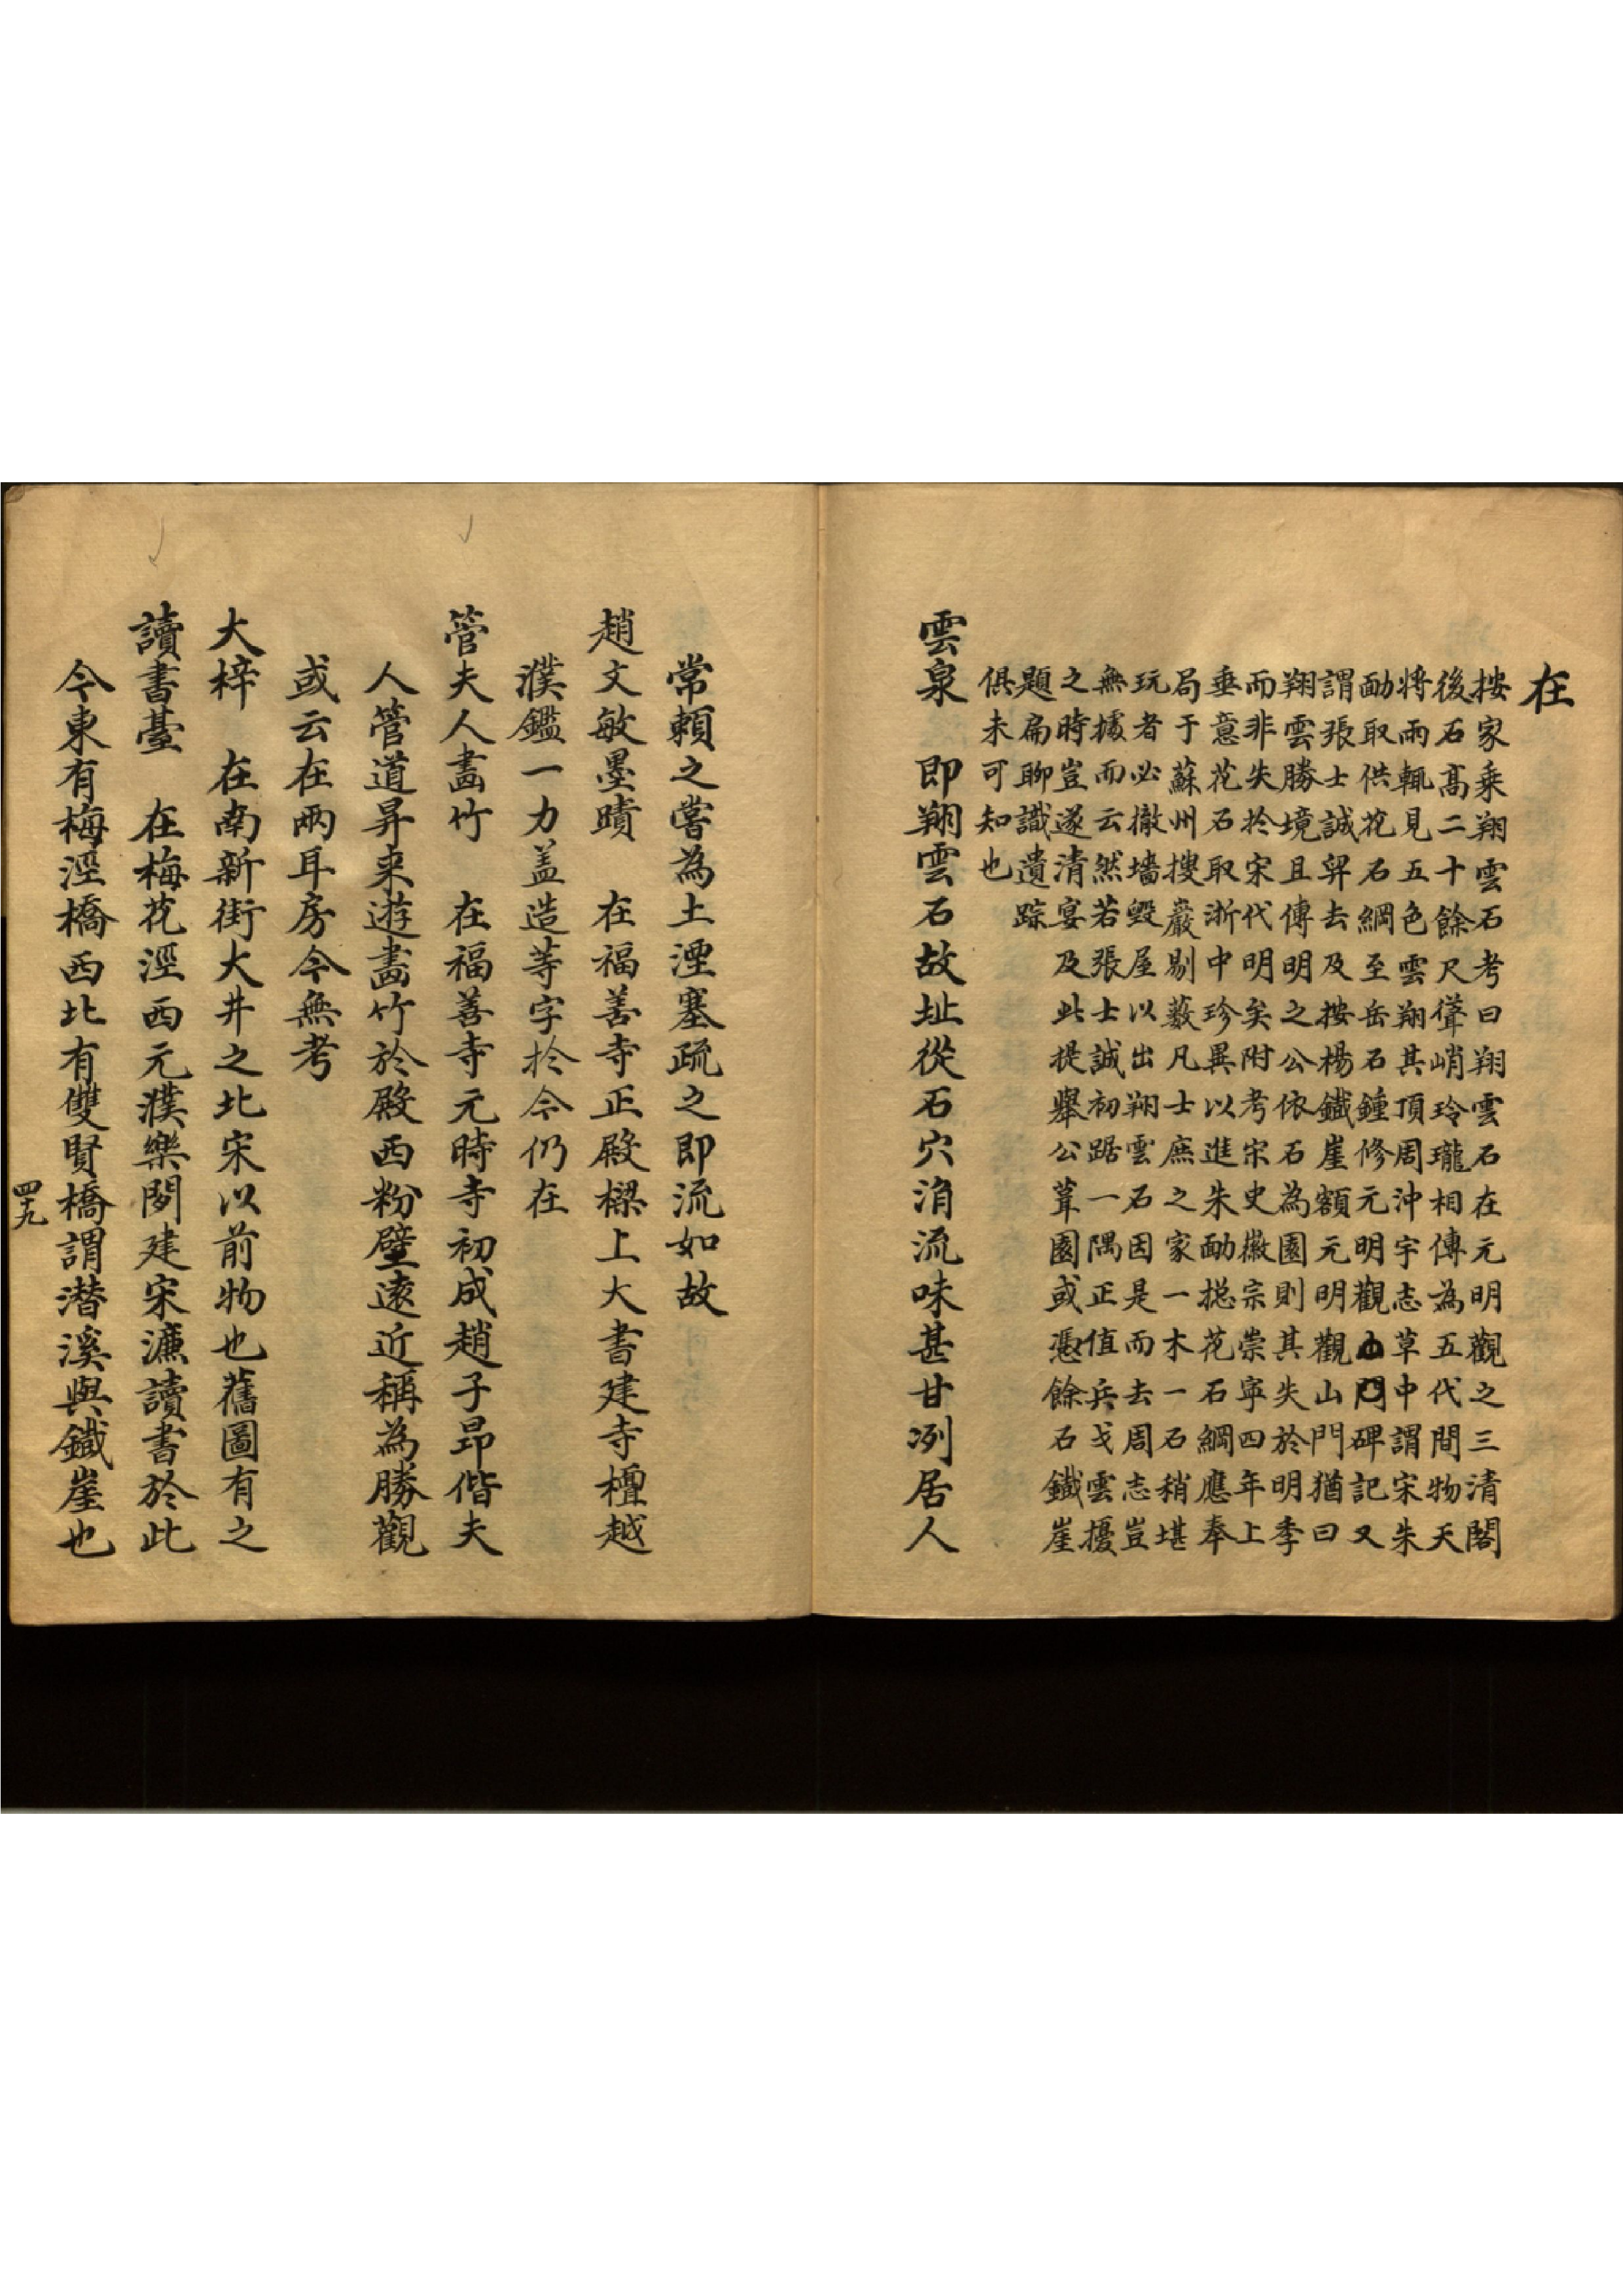 在
按家乘翔雲石考曰翔雲石在元明觀之三清閣
後石高二十餘尺聳峭玲瓏相傳為五代間物天
將雨輒見五色雲翔其頂周沖宇志草中謂宋朱
勔取供花石綱至岳石鍾修元明觀山門碑記又
謂張士誠舁去及按楊鐵崖額元明觀山門猶曰
翔雲勝境且傳明之公依石為園則其失於明季
而非失於宋代明矣附考宋史徽宗崇寧四年上
垂意花石取浙中珍異以進朱勔摠花石綱應奉
局于蘇州搜巖剔藪凡士庶之家一木一石稍堪
玩者必撤墻毀屋以出翔雲石因是而去周志豈
無據而云然若張士誠初踞一隅正值兵戈雲擾
之時豈遂清宴及此提舉公葺園或憑餘石鐵崖
題扁聊識遺踪
俱未可知也
雲泉　即翔雲石故址從石穴涓流味甚甘冽居人
常賴之嘗為土湮塞疏之即流如故
趙文敏墨蹟　在福善寺正殿樑上大書建寺檀越
濮鑑一力盖造等字於今仍在
管夫人畵竹　在福善寺元時寺初成趙子昂偕夫
人管道昇来遊畵竹於殿西粉壁遠近稱為勝觀
或云在兩耳房今無考
大梓　在南新街大井之北宋以前物也舊圖有之
讀書臺　在梅花涇西元濮樂閒建宋濂讀書於此
今東有梅涇橋西北有雙賢橋謂潜溪與鐵崖也
四九